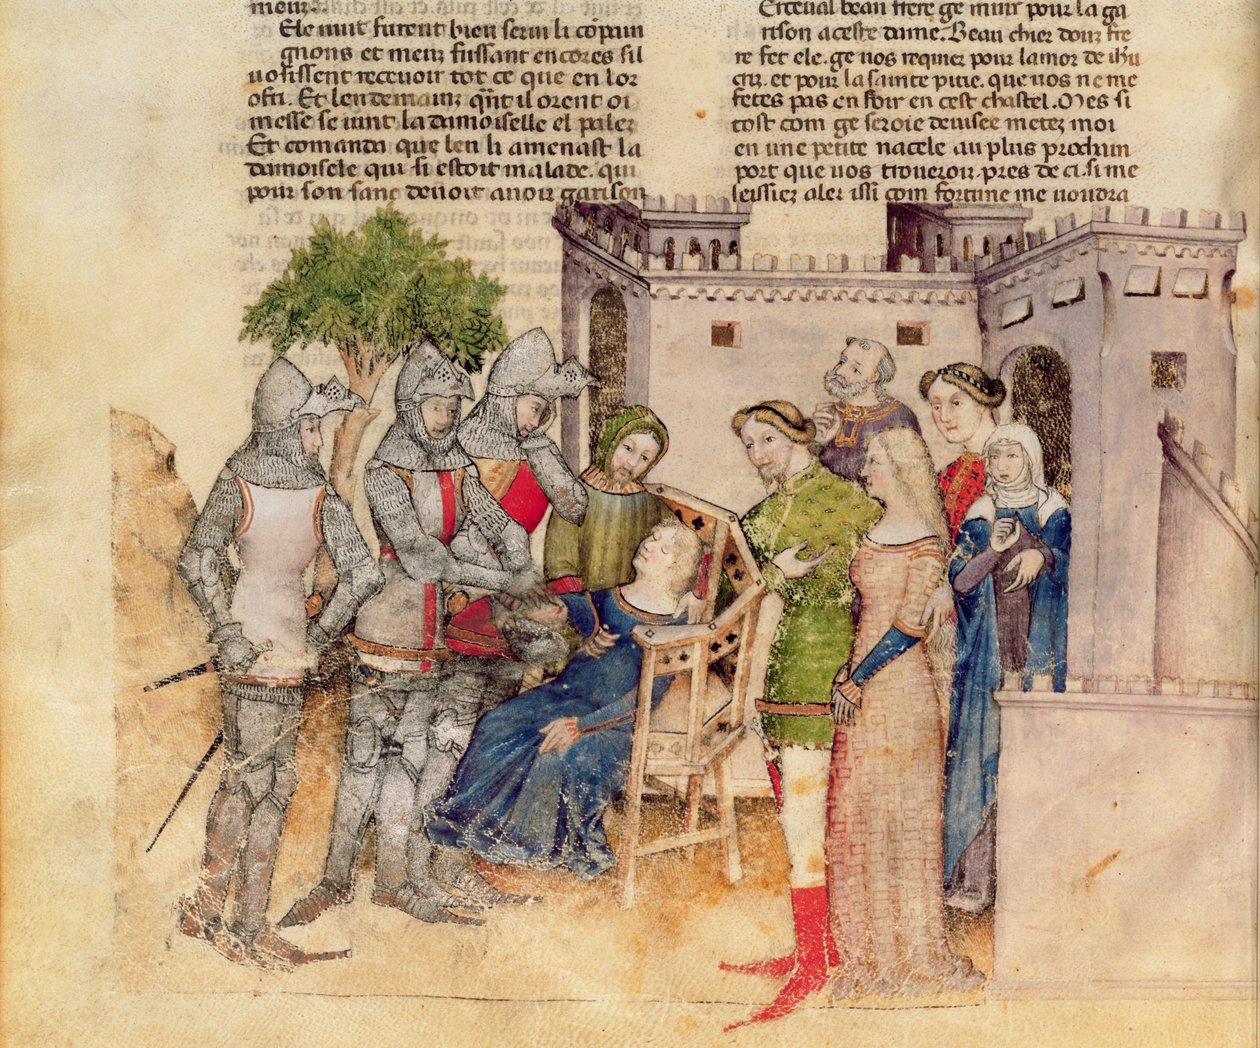 meur.
Ele nuit furent bien serui li cōpain
gnons et meuz fussant encores sil
uosissent receuoir tot ce que en lor
ofri. Et lendemain qn̄t il orent oi
messe se uint la damoiselle el pales
Et comanda que len li amenast la
damoisele qui si estoit malade. qui
pour son sanc deuoit auoir garison
Perceual beau frere ge muir pour la ga
rison aceste dame. Beau chier douz fre
re fet ele. ge uos requier pour lamor de ihū
crist. et pour la sainte pitie. que uos ne me
fetes pas enfoir en cest chastel. Mes si
tost com ge seroie deuisee metez moi
en une petite nacele au plus prochain
port que uos trouerois pres de ci. si me
leissiez aler issi com fortune me uoudra